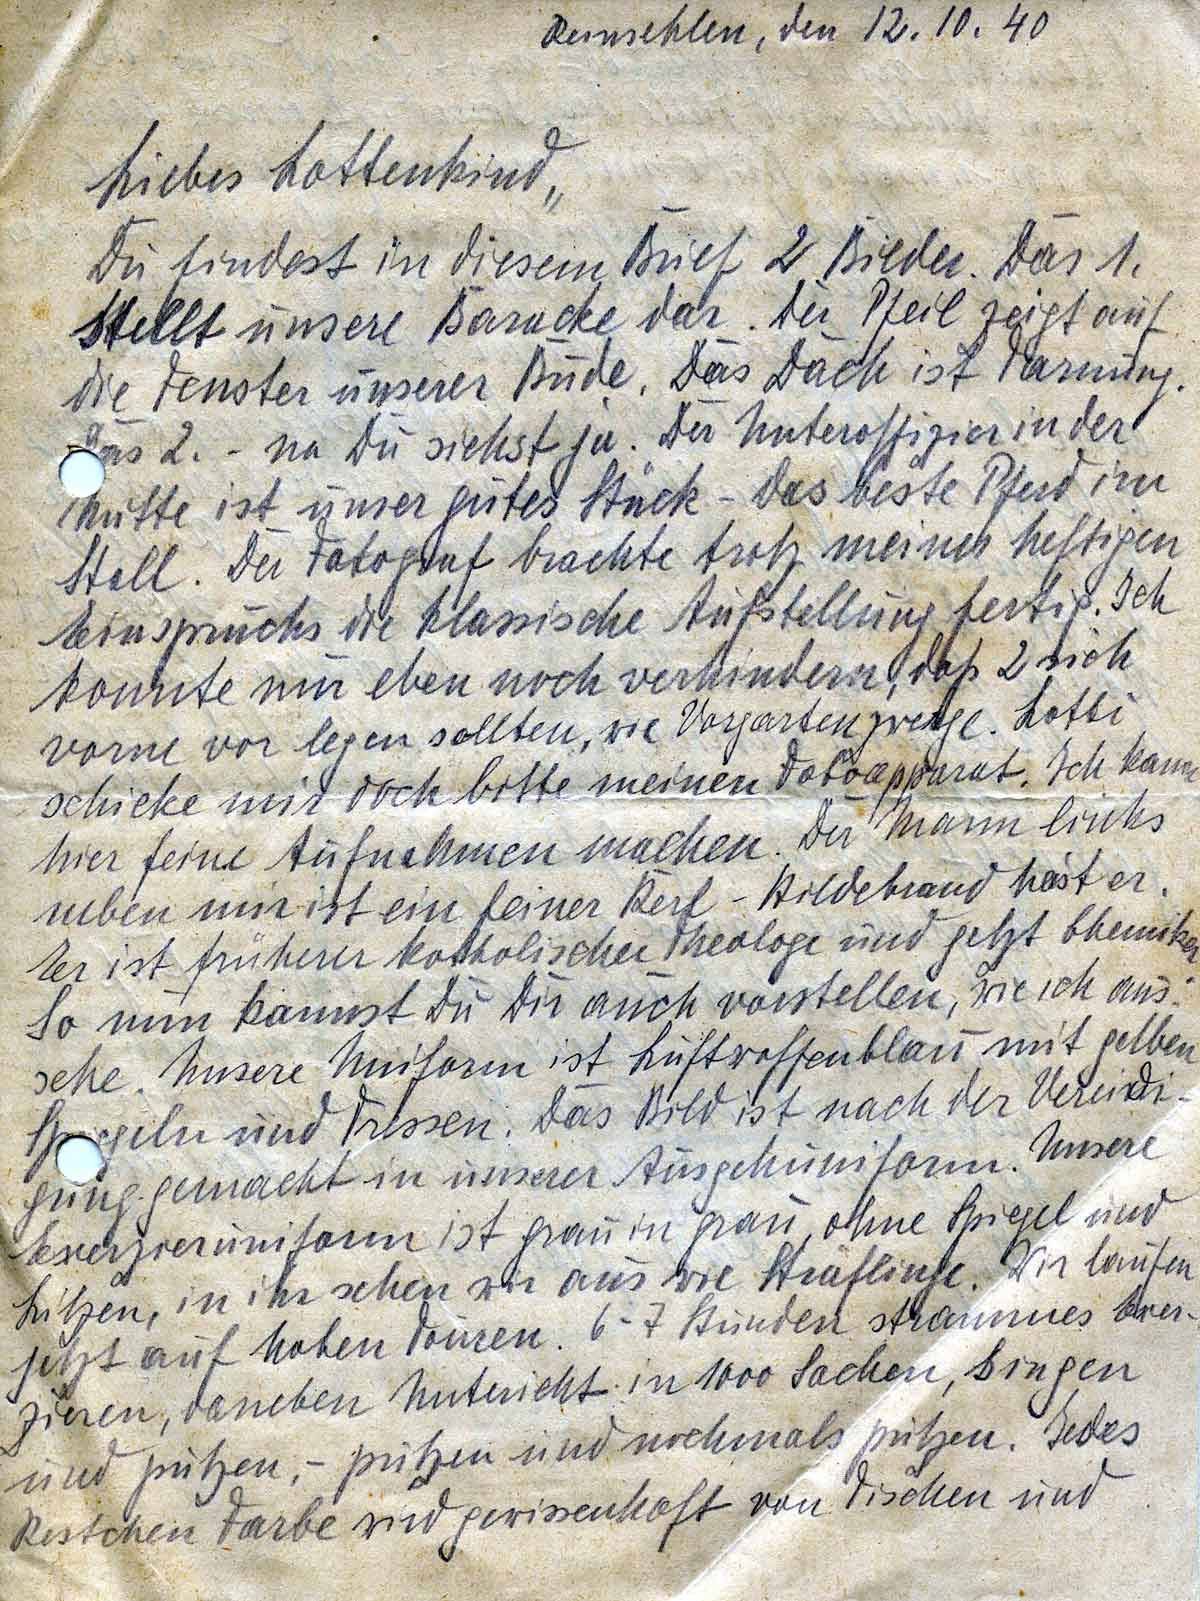 Reinsehlen, den 12.10.40
Liebes Lottenkind,,
Du findest in diesem Brief 2 Bilder. Das 1.
stellt unsere Baracke dar. Der Pfeil zeigt auf
die Fenster unserer Bude. Das Dach ist Tarnung.
Das 2. - na Du siehst ja. Der Unteroffizier in der
Mitte ist unser gutes Stück - das beste Pferd im
Stall. Der Fotograf brachte trotz meines heftigen
Einspruchs die klassische Aufstellung fertig. Ich
konnte nur eben noch verhindern, daß 2 sich
vorne vor legen sollten, wie Vorgartenzwerge. Lotti
schicke mir doch bitte meinen Fotoapparat. Ich kann
hier feine Aufnahmen machen. Der Mann links
neben mir ist ein feiner Kerl - Hildebrand häst er.
Er ist früherer katholischer Theologe und jetzt Chemiker.
So nun kannst Du Dir auch vorstellen, wie ich aus-
sehe. Unsere Uniform ist Luftwaffenblau mit gelben
Spiegeln und Tressen. Das Bild ist nach der Vereidi-
gung gemacht in unserer Ausgehuniform. Unsere
Exerzieruniform ist grau in grau, ohne Spiegel und
Litzen, in ihr sehen wir aus wie Sträflinge. Wir laufen
jetzt auf hohen Touren. 6-7 Stunden strammes Exer-
zieren, daneben Untericht in 1000 Sachen, Singen
und putzen, - putzen und nochmals putzen. Jedes
Restchen Farbe wird gewissenhaft von Tischen und